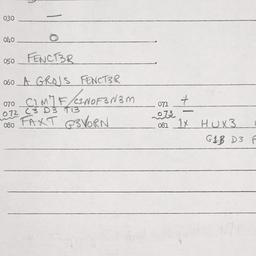 030 —
040 O
050 FENCT3R
060 A GROIS FENCT3R
070 C1M7F/C1NOF3N3M 071 +
072 C3 D3 T13 073 —
080 FAXT G3VORN 081 1X HUX3
G1B D3